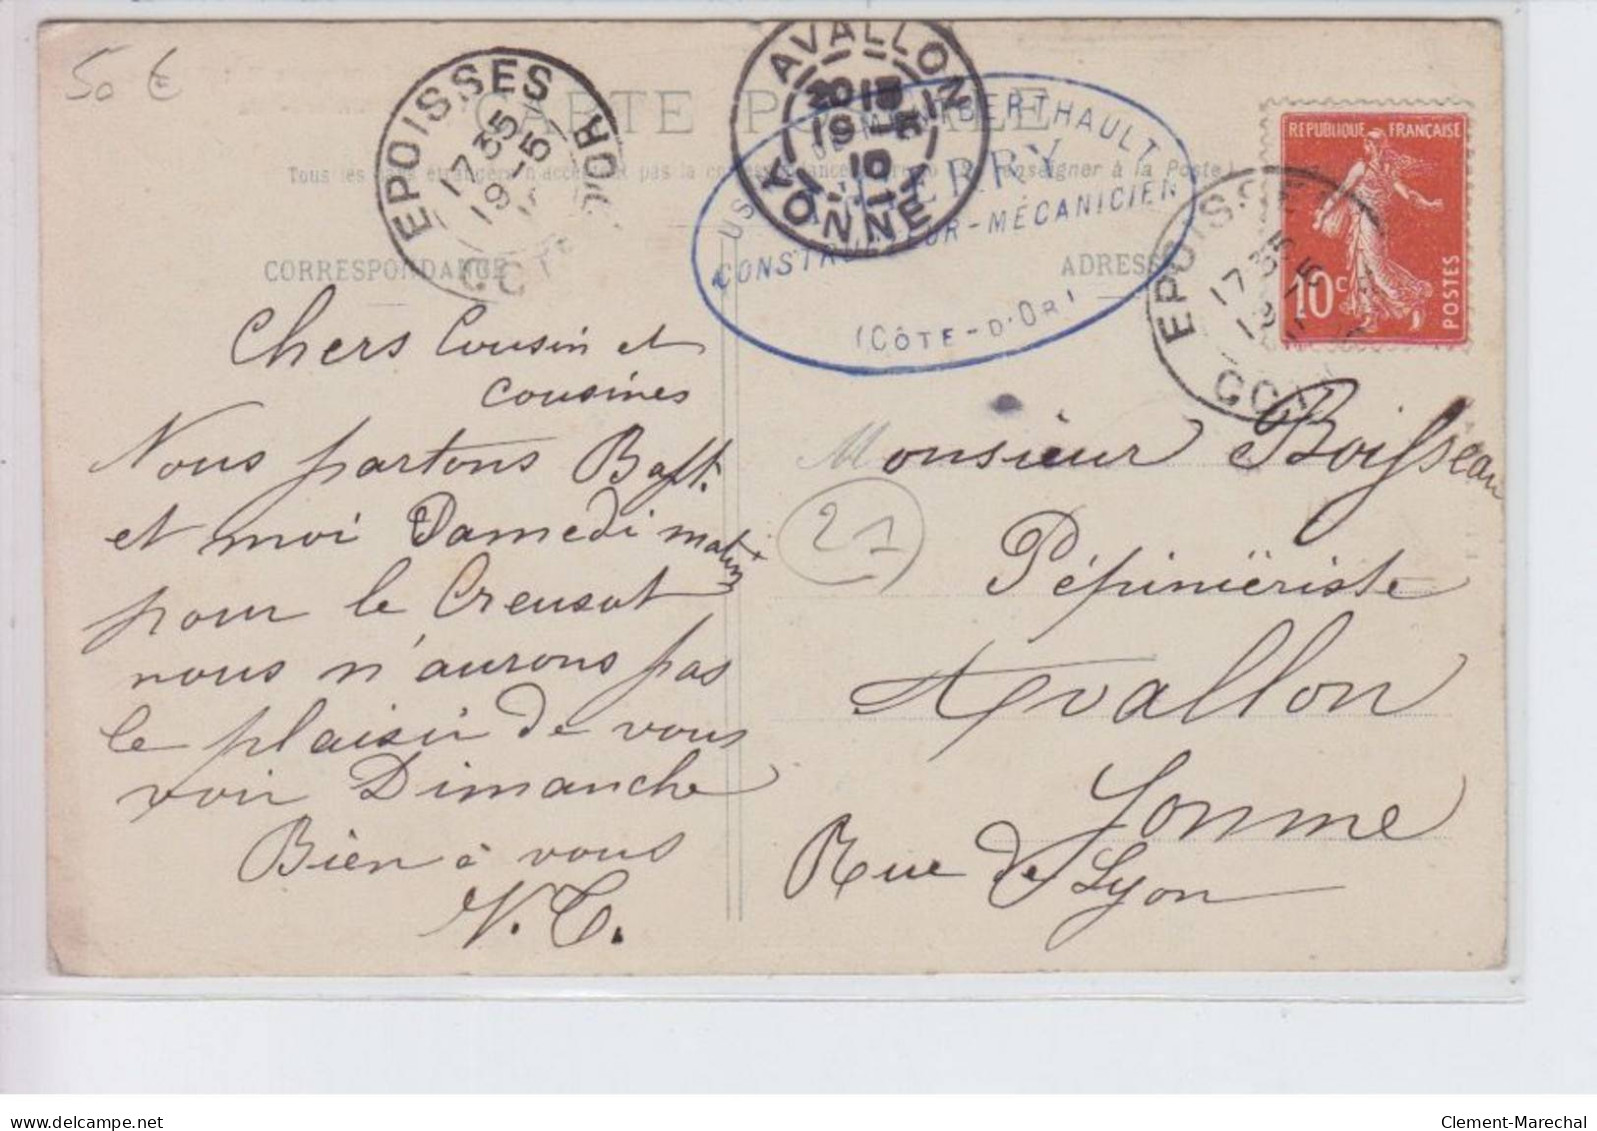 50 €
CARTE POSTALE
EPOISSES
17 35
19 - 5
COTE D'OR
AVALLON
20 15
19 - 5
10
YONNE
BERTHAULT
CONSTRUCTEUR-MÉCANICIEN
(CÔTE-D'OR)
REPUBLIQUE FRANÇAISE
10c
POSTES
EPOISSES
17 35
19 - 5
Tous les pays étrangers n'acceptent pas la correspondance au recto (se renseigner à la Poste)
CORRESPONDANCE
ADRESSE
Chers Cousin et
cousines
Nous partons Bapt.
et moi Samedi matin
pour le Creusot
nous n'aurons pas
le plaisir de vous
voir Dimanche
Bien à vous
Monsieur Boisseau
21
Pépiniëriste
Avallon
Yonne
Rue de Lyon
Clement-Marechal
www.delcampe.net